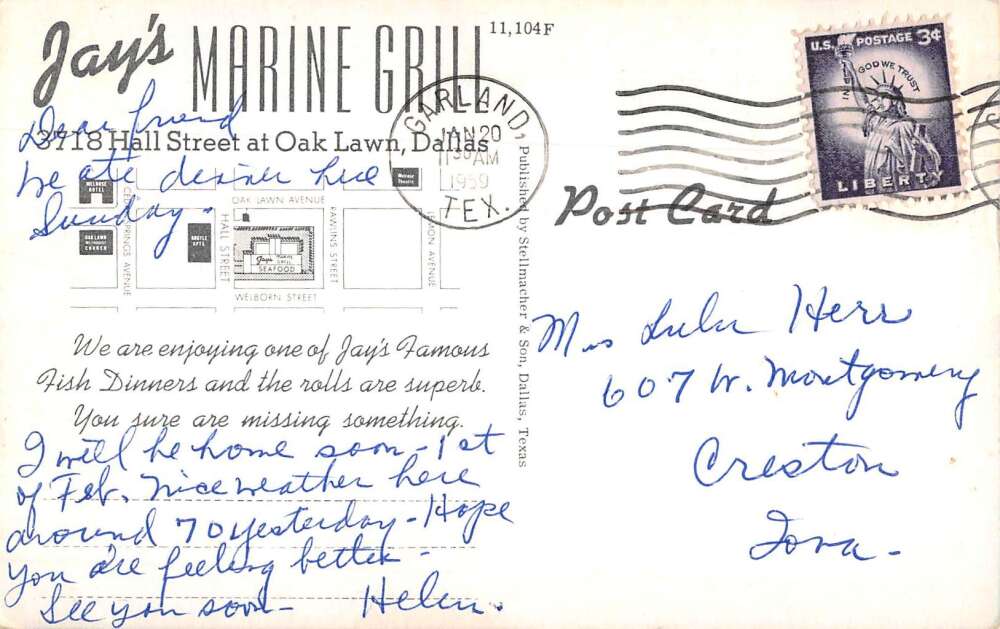 Jay's MARINE GRILL
11,104F
3718 Hall Street at Oak Lawn, Dallas
Dear friend
we ate dinner here
Sunday -
MELROSE HOTEL
CEDAR SPRINGS AVENUE
OAK LAWN METHODIST CHURCH
ARGYLE APTS.
OAK LAWN AVENUE
HALL STREET
Jay's MARINE GRILL
SEAFOOD
RAWLINS STREET
Melrose Theatre
LEMMON AVENUE
WELBORN STREET
We are enjoying one of Jay's Famous
Fish Dinners and the rolls are superb.
You sure are missing something.
I will be home soon - 1st
of Feb. Nice weather here
around 70 yesterday - Hope
you are feeling better -
See you soon - Helen.
Published by Stellmacher & Son, Dallas, Texas
GARLAND,
JAN 20
11 30 AM
1959
TEX.
U.S. POSTAGE 3¢
IN GOD WE TRUST
LIBERTY
Post Card
Mrs Lulu Herr
607 W. Montgomery
Creston
Iowa -